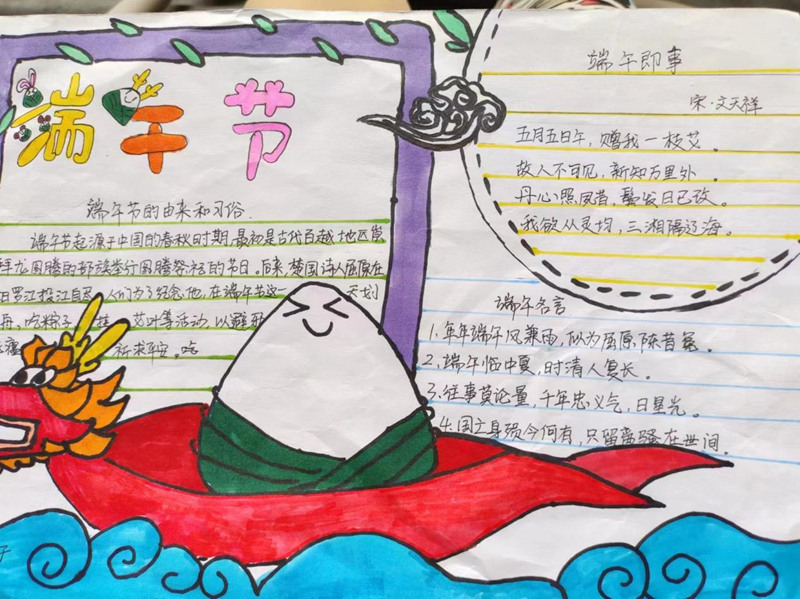 端午节
端午节的由来和习俗.
端午节起源于中国的春秋时期,最初是古代百越地区崇
拜龙图腾的部族举行图腾祭祖的节日。后来,楚国诗人屈原在
汨罗江投江自尽,人们为了纪念他,在端午节这一 天划
舟、吃粽子、 挂 艾叶等活动,以避邪
祈求平安。吃
端午即事
宋·文天祥
五月五日午,赠我一枝艾。
故人不可见,新知万里外。
丹心照夙昔,鬓发日已改。
我欲从灵均,三湘隔辽海。
端午名言
1.年年端午风兼雨,似为屈原陈昔冤。
2.端午临中夏,时清人复长。
3.往事莫论量,千年忠义气,日星光。
4.国亡身殒今何有,只留离骚在世间。